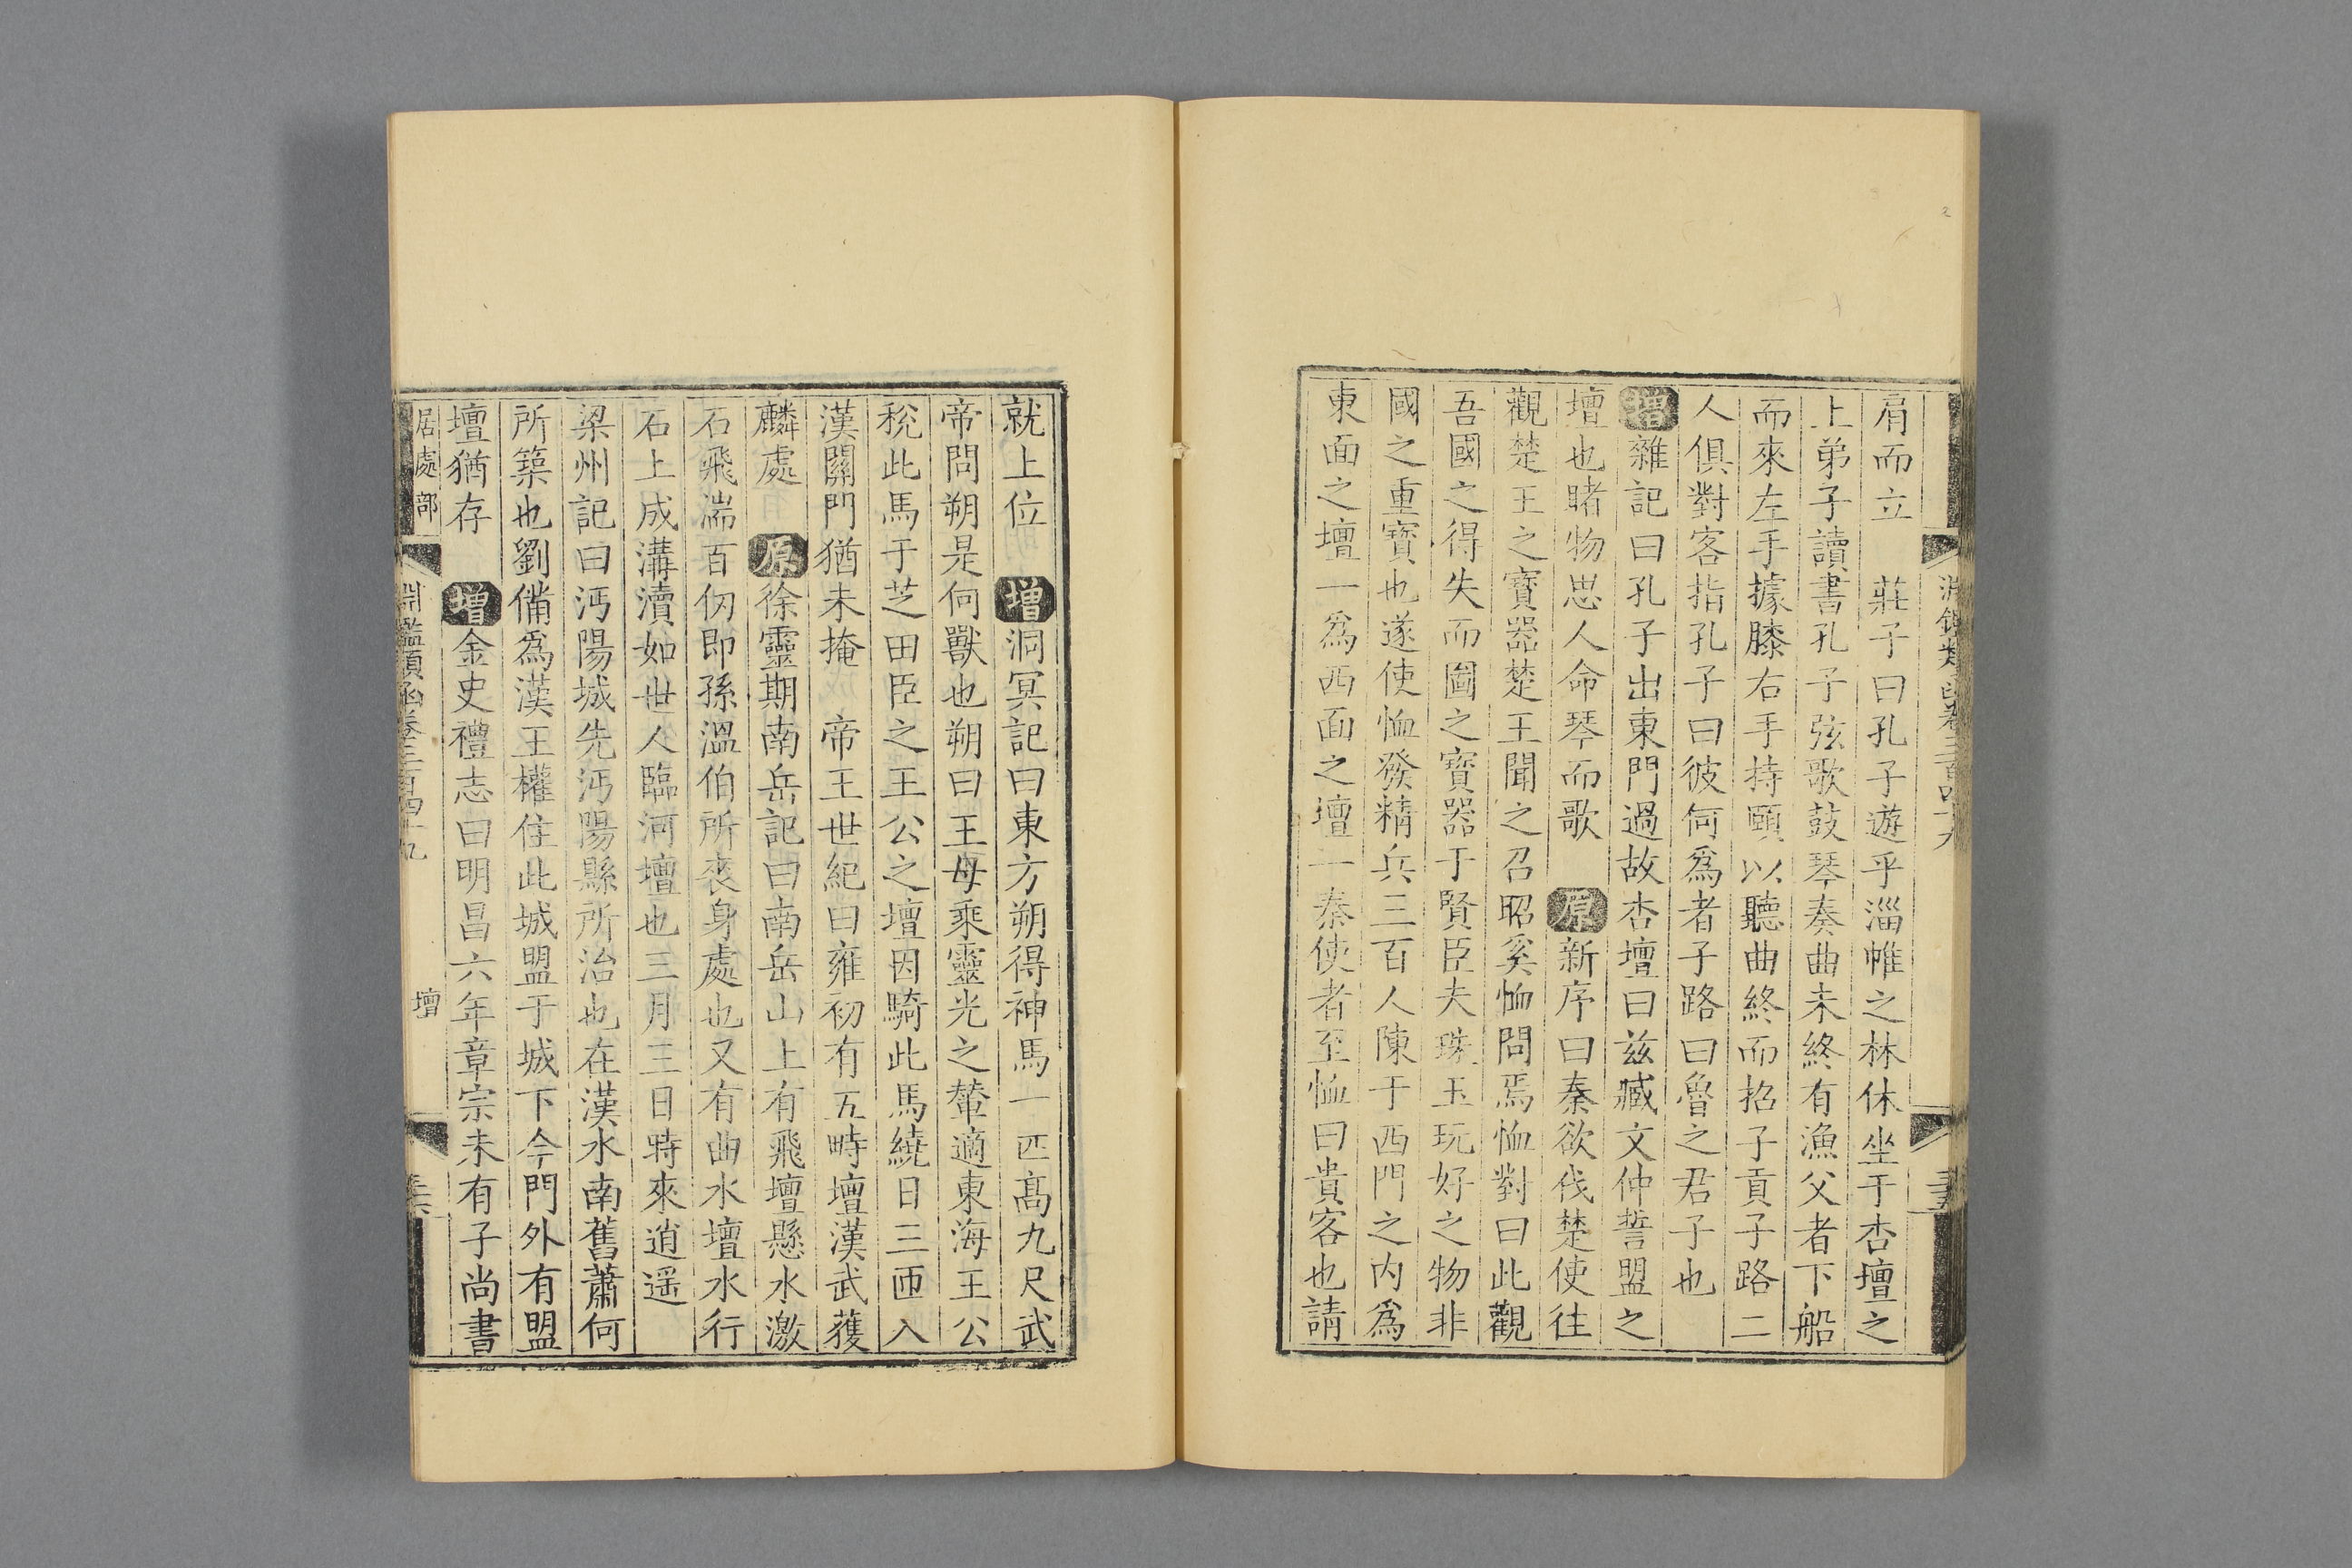 肩而立　莊子曰孔子遊乎淄帷之林休坐于杏壇之
上弟子讀書孔子弦歌鼓琴奏曲未終有漁父者下船
而來左手據膝右手持頤以聽曲終而招子貢子路二
人俱對客指孔子曰彼何爲者子路曰魯之君子也
增雜記曰孔子出東門過故杏壇曰兹臧文仲誓盟之
壇也睹物思人命琴而歌　原新序曰秦欲伐楚使往
觀楚王之寶器楚王聞之召昭奚恤問焉恤對曰此觀
吾國之得失而圖之寶器于賢臣夫珠玉玩好之物非
國之重寶也遂使恤發精兵三百人陳于西門之内爲
東面之壇一爲西面之壇一秦使者至恤曰貴客也請
就上位　增洞冥記曰東方朔得神馬一匹髙九尺武
帝問朔是何獸也朔曰王母乘靈光之輦適東海王公
稅此馬于芝田臣之王公之壇因騎此馬繞日三匝入
漢關門猶未掩　帝王世紀曰雍初有五畤壇漢武獲
麟處　原徐靈期南岳記曰南岳山上有飛壇懸水激
石飛湍百仞即孫溫伯所喪身處也又有曲水壇水行
石上成溝瀆如世人臨河壇也三月三日時來逍遥
梁州記曰沔陽城先沔陽縣所治也在漢水南舊蕭何
所築也劉備爲漢王權住此城盟于城下今門外有盟
壇猶存　增金史禮志曰明昌六年章宗未有子尚書
居處部　淵鑑類函卷三百四十九　壇